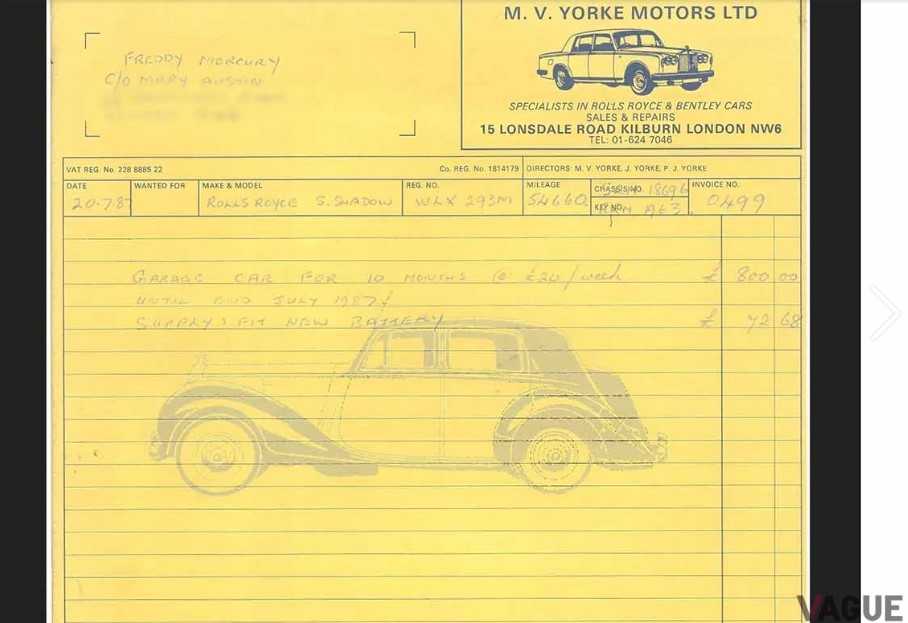 M. V. YORKE MOTORS LTD
SPECIALISTS IN ROLLS ROYCE & BENTLEY CARS
SALES & REPAIRS
15 LONSDALE ROAD KILBURN LONDON NW6
TEL: 01-624 7046
FREDDY MERCURY
C/O MARY AUSTIN
VAT REG. No. 228 8885 22 Co. REG. No. 1814179 DIRECTORS: M. V. YORKE, J. YORKE, P. J. YORKE
DATE WANTED FOR MAKE & MODEL REG. NO. MILEAGE CHASSIS NO. INVOICE NO.
20.7.87 ROLLS ROYCE S. SHADOW WLX 293M 54660 18696 0499
KEY NO.
GARAGE CAR FOR 10 MONTHS @ £20/week £ 800.00
UNTIL END JULY 1987
SUPPLY & FIT NEW BATTERY £ 72 68
VAGUE